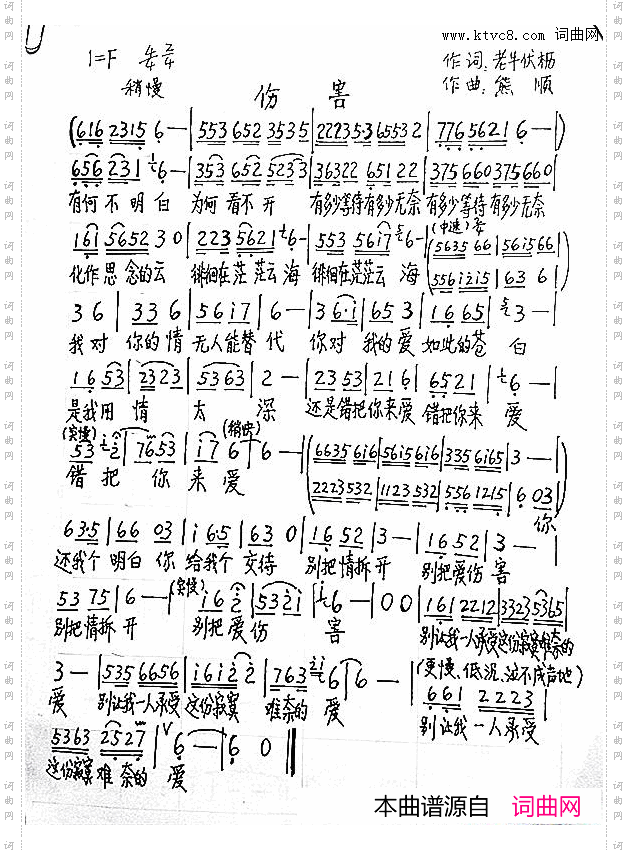 www.ktvc8.com 词曲网
1=F
作词:老牛伏枥
稍慢
伤 害
作曲:熊 顺
(616 2315 6 — | 553 652 3535 | 2223 53 65532 | 776 5621 6 — | )
656 231 6 — | 353 652 5233 | 36322 651 22 | 375 660 375 660 |
有何不明白 为何看不开 有多少等待有多少无奈 有多少等待有多少无奈
(中速)
161 5652 30 | 223 5621 6 — | 553 5617 6 — | 5635 66 | 561566 |
5561215 | 63 6 |
化作思念的云 徘徊在茫茫云海 徘徊在茫茫云 海
3 6 | 33 6 | 5617 | 6 — | 3 6·1 | 65 3 | 1 65 | 3 — |
我对 你的情 无人能替代 你对 我的爱 如此的苍 白
1653 | 2323 | 5363 | 2 — | 2353 | 21 6 | 6521 | 6 — |
是我用情 太 深 还是错把你来爱 错把你来 爱
(突慢) (稍快)
53 2 | 7653 | 17 6 | 6 — | 6635616 | 5615616 | 3356165 | 3 — |
2223532 | 1123532 | 5561215 | 6 03 |
错把 你 来爱
你
635 | 66 03 | 1 65 | 63 0 | 1652 | 3 — | 1652 | 3 — |
还我个 明白 你 给我个 交待 别把情拆开 别把爱伤害
(突慢)
53 75 | 6 — | 16 2 | 5321 | 6 — | 0 0 | 161 2212 | 3323 5365 |
别把情拆开 别把爱伤 害 别让我一人承受这份寂寞难奈的
3 — | 535 6656 | 1612 2 | 763 6 | 6 — |
(更慢、低沉、泣不成声地)
661 2223 |
爱 别让我一人承受 这份寂寞 难奈的 爱 别让我一人承受
5363 2527 | 6 — | 6 0 ‖
这份寂寞难奈的 爱
本曲谱源自 词曲网